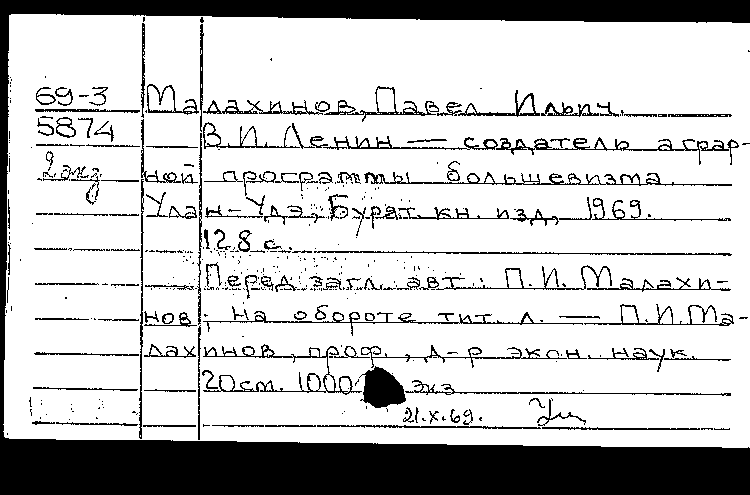 69-3 Малахинов, Павел Ильич.
5874 В.И. Ленин — создатель аграр-
2 экз ной программы большевизма.
Улан-Удэ, Бурят. кн. изд, 1969.
128 с.
Перед загл. авт.: П.И. Малахи-
нов; на обороте тит. л. — П.И.Ма-
лахинов, проф., д-р экон. наук.
20см. 1000 экз
21.X.69.